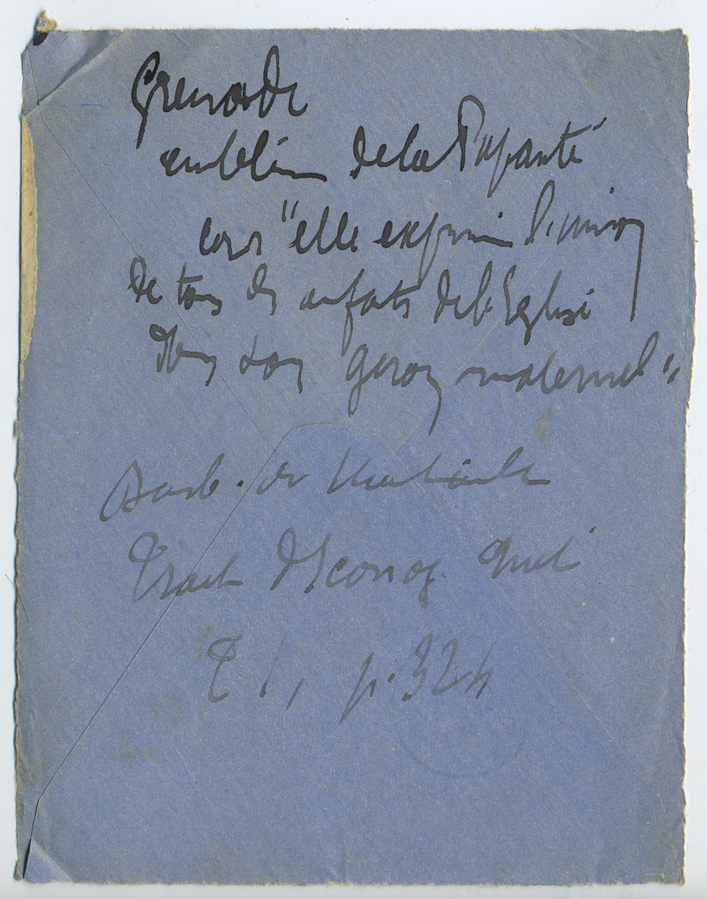 Grenade
emblème de la Papauté
car "elle exprime l'union
de tous les enfants de l'Eglise
dans son giron maternel"
Barb. de Montault
Traité d'Iconog. chret
T 1, p. 324